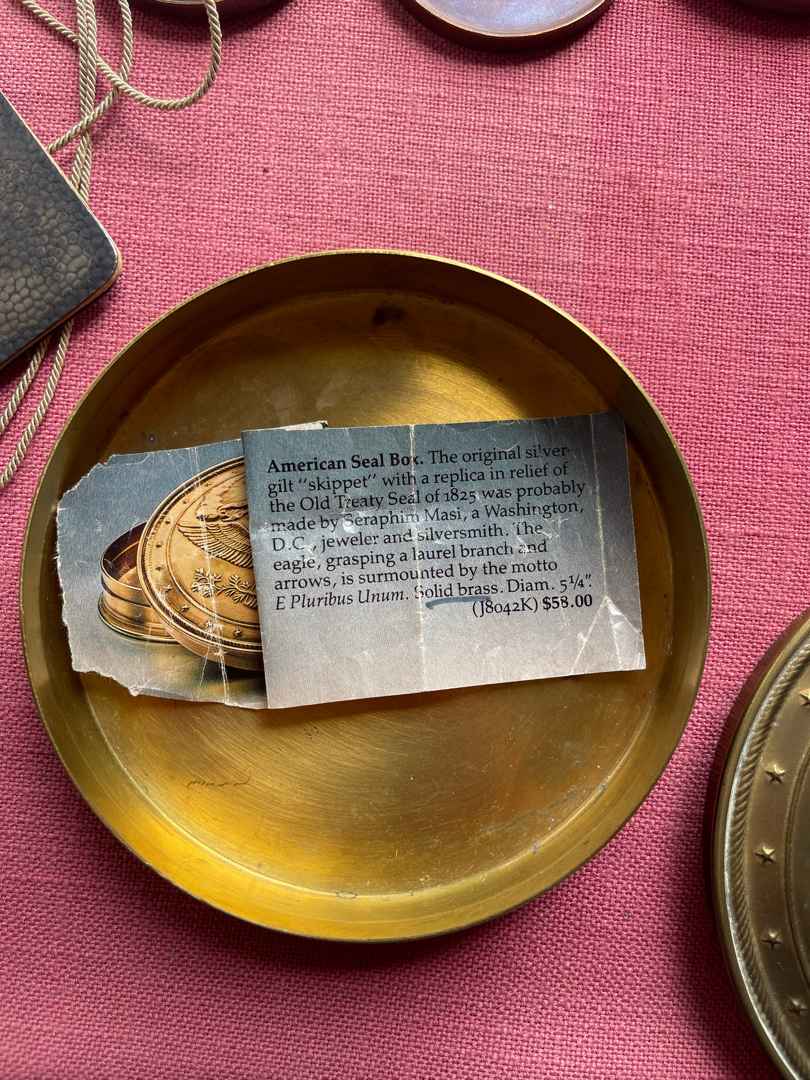 American Seal Box. The original silver-
gilt "skippet" with a replica in relief of
the Old Treaty Seal of 1825 was probably
made by Seraphim Masi, a Washington,
D.C., jeweler and silversmith. The
eagle, grasping a laurel branch and
arrows, is surmounted by the motto
E Pluribus Unum. Solid brass. Diam. 5¼".
(J8042K) $58.00